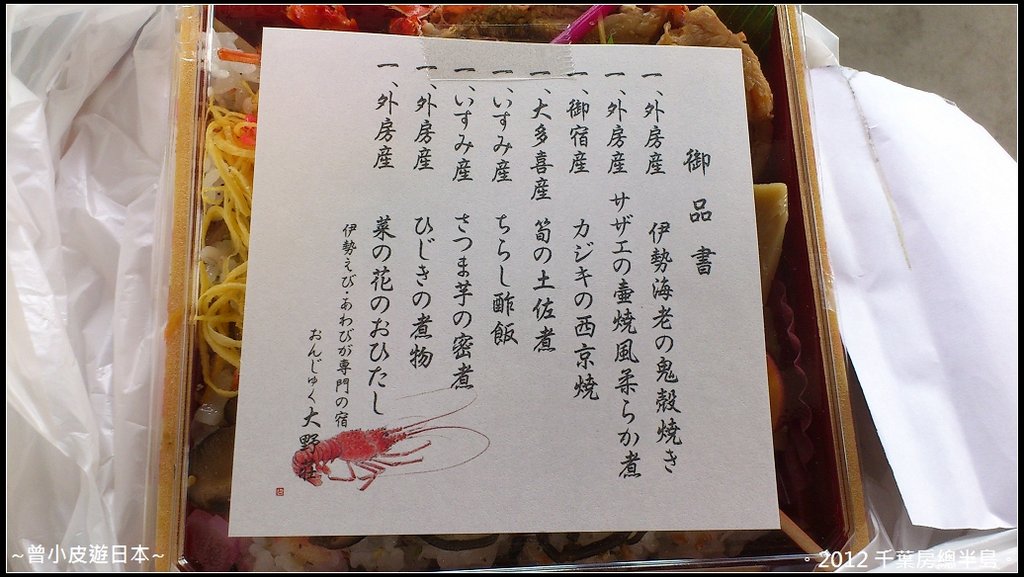 御品書
一、外房産 伊勢海老の鬼殻焼き
一、外房産 サザエの壷焼風柔らか煮
一、御宿産 カジキの西京焼
一、大多喜産 筍の土佐煮
一、いすみ産 ちらし酢飯
一、いすみ産 さつま芋の密煮
一、外房産 ひじきの煮物
一、外房産 菜の花のおひたし
伊勢えび・あわびが専門の宿
おんじゅく 大野荘
~曾小皮遊日本~
。2012 千葉房總半島。